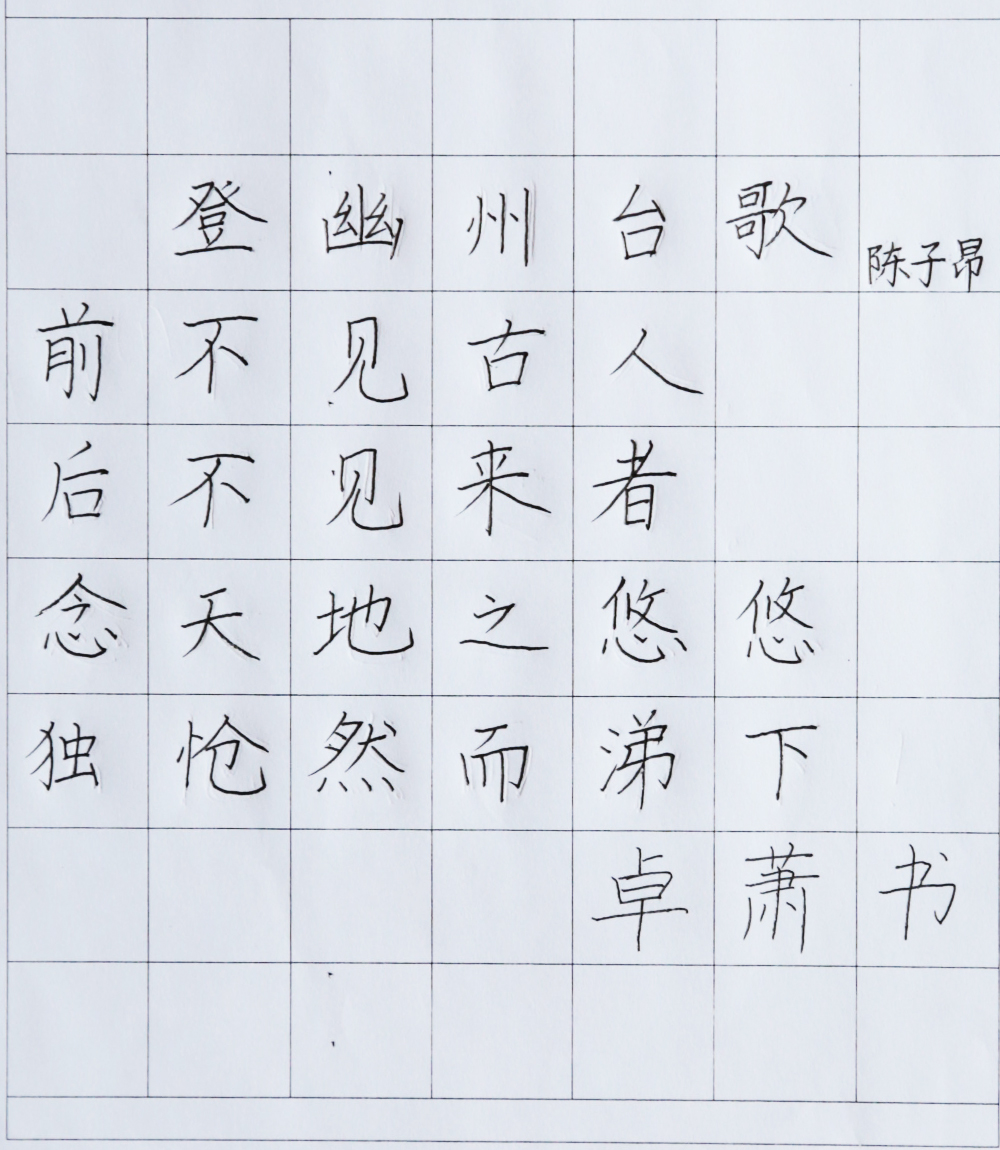 登幽州台歌 陈子昂
前不见古人
后不见来者
念天地之悠悠
独怆然而涕下
卓萧书